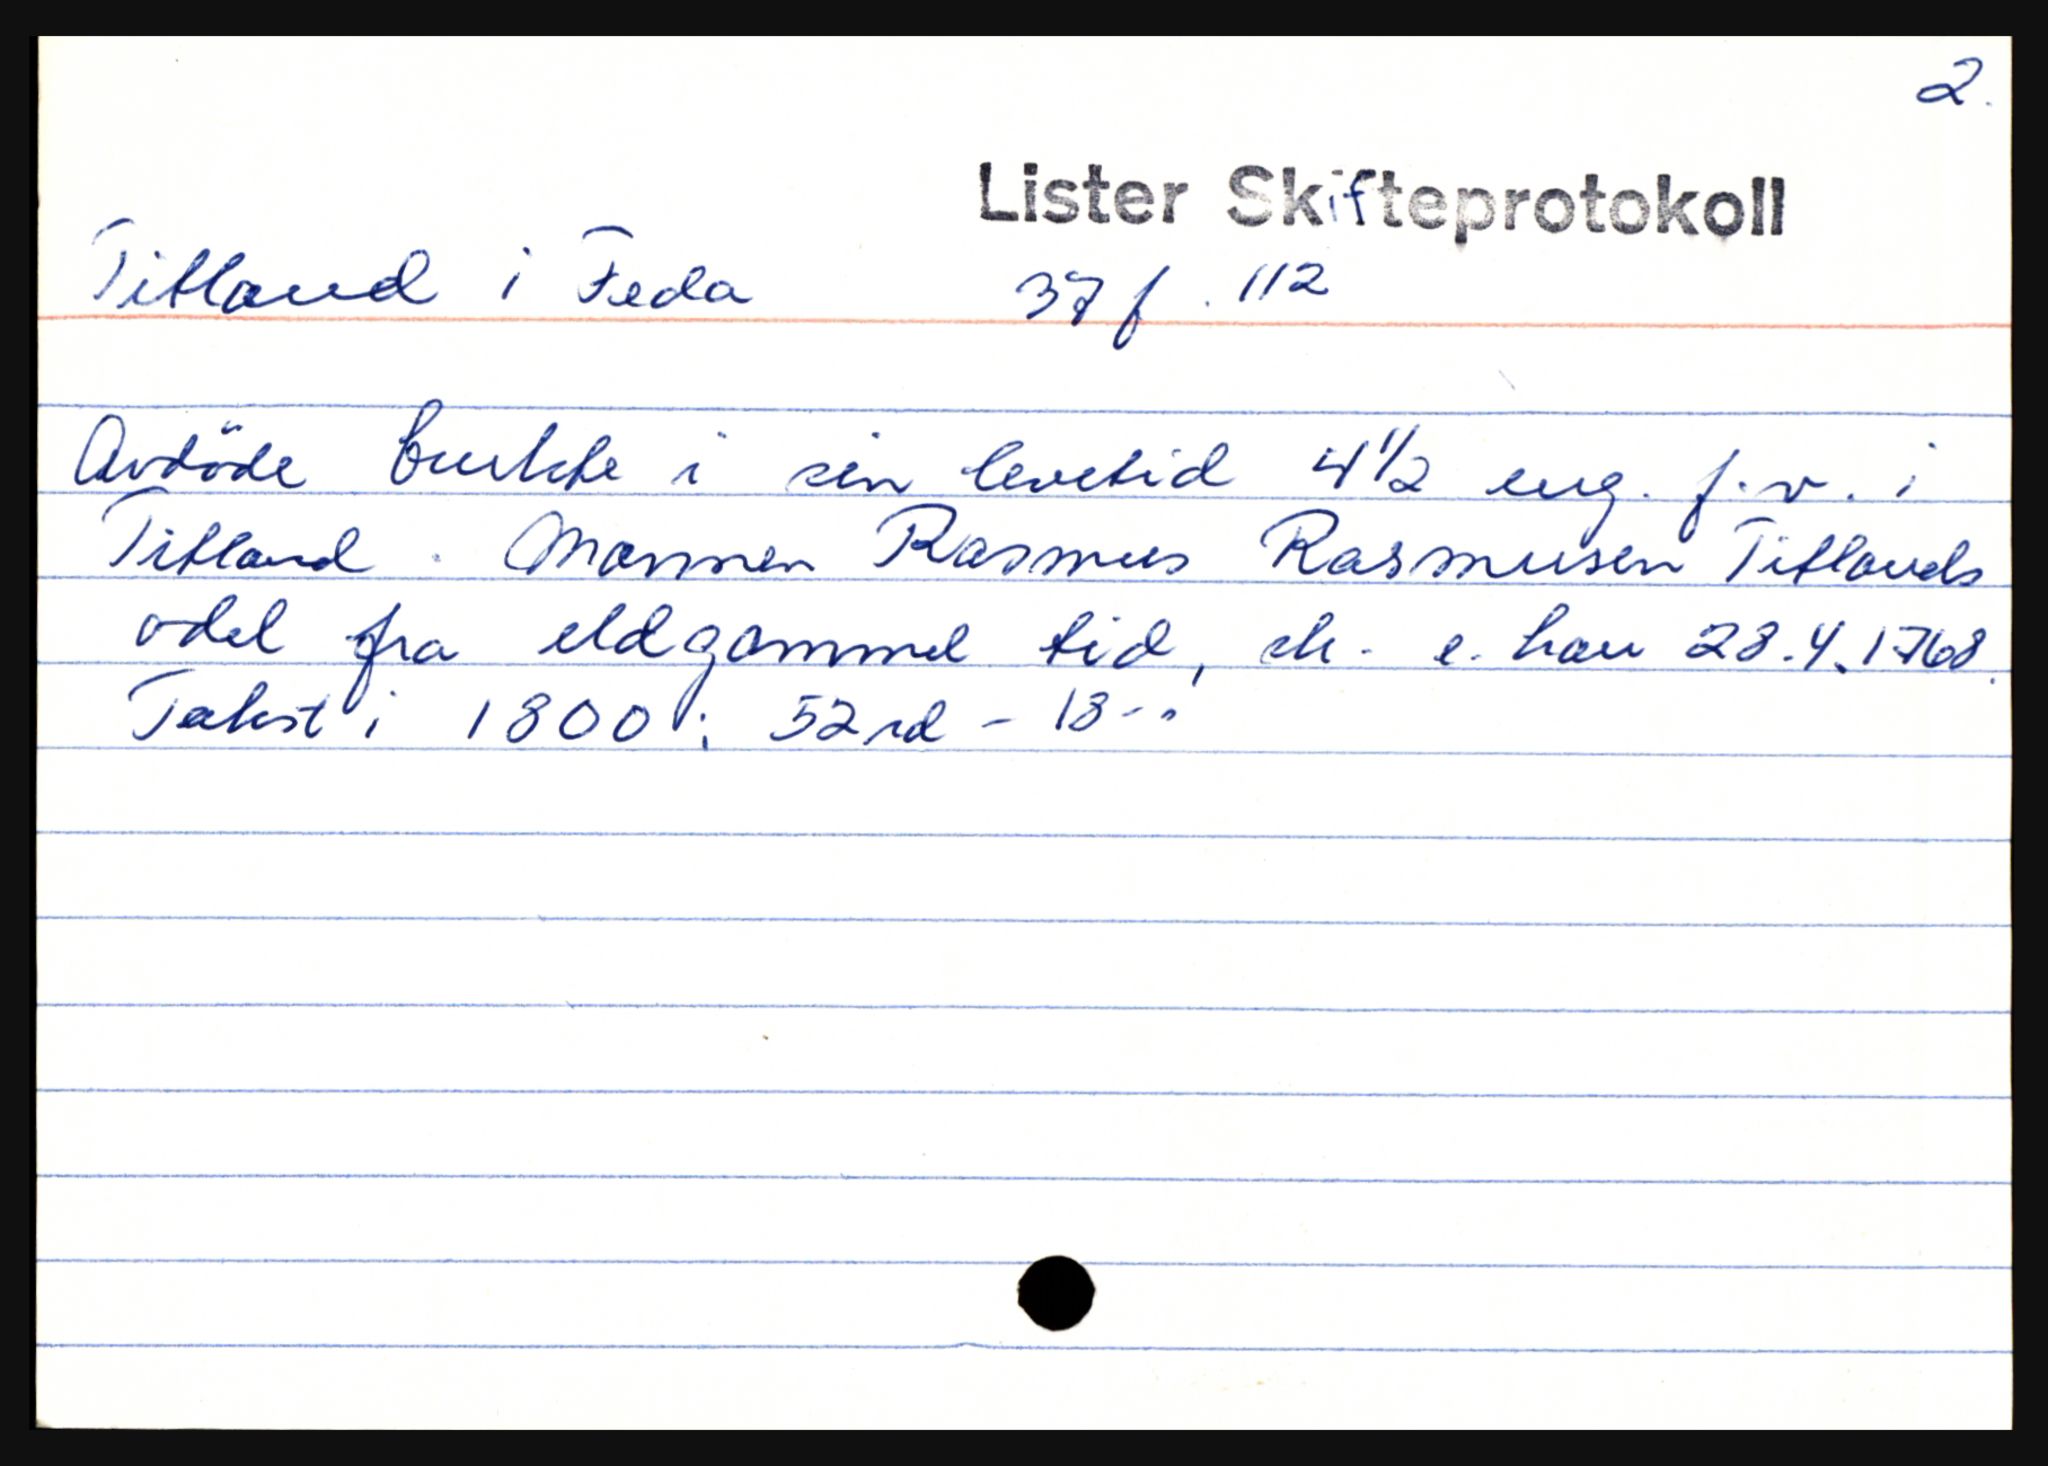 2.
Lister Skifteprotokoll
Titland i Feda 37 f. 112
Avdöde brukte i sin levetid 4 1/2 eng. f. v. i
Titland. Mannen Rasmus Rasmusen Titlands
odel fra eldgammel tid, sk. e. han 28.4.1768.
Takst i 1800: 52 rd - 13 -